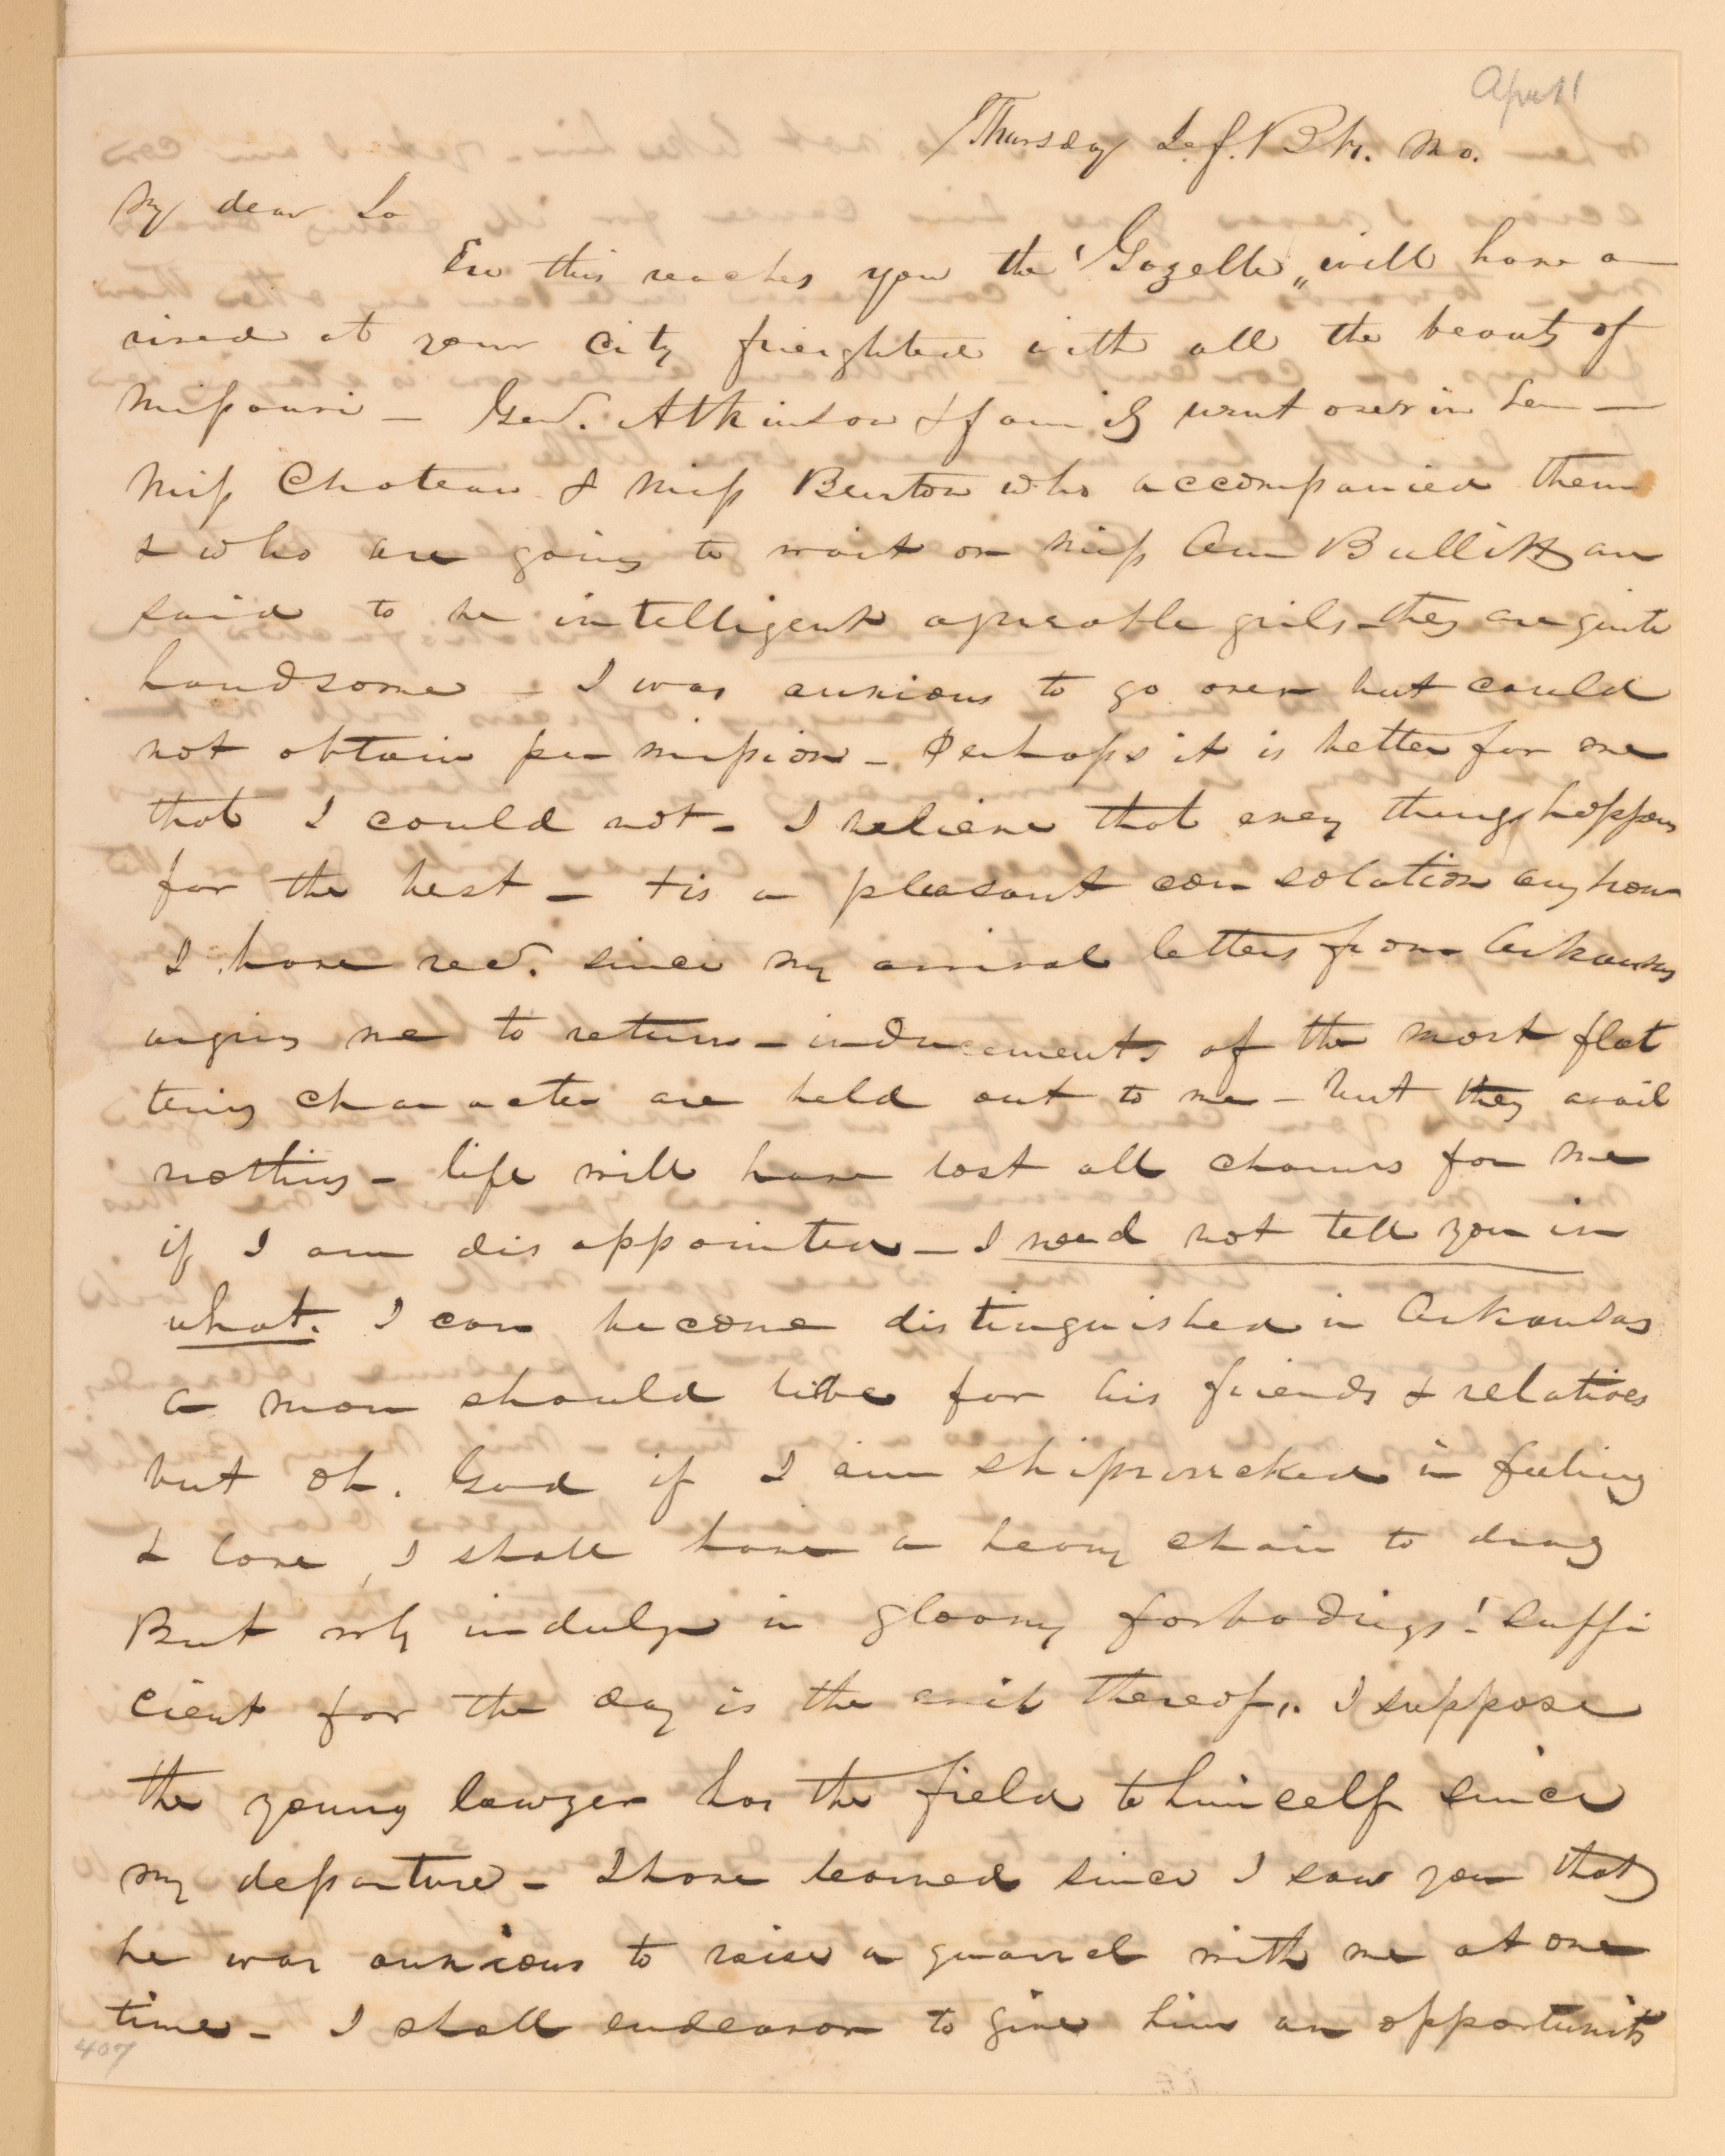 April
Thursday Jef. Bks. Mo.
My dear Lo
Ere this reaches you the "Gazelle" will have a
rived at your city frieghted with all the beauty of
Missouri – Genl. Atkinson & family went over in her –
Miss Choteau & Miss Benton who accompanied them
& who are going to wait on Miss Ann Bullitt are
said to be intelligent agreeable girls – they are quite
handsome – I was anxious to go over but could
not obtain permission – Perhaps it is better for me
that I could not – I believe that every thing happens
for the best – tis a pleasant consolation anyhow
I have recd. since my arrival letters from Arkansas
urging me to return – inducements of the most flat
tering character are held out to me – but they avail
nothing – life will have lost all charms for me
if I am disappointed – I need not tell you in
what. I can become distinguished in Arkansas
a man should live for his friends & relatives
but oh. God if I am shipwrecked in feeling
& love, I shall have a heavy chain to drag
But why indulge in gloomy forbodings! Suffi
cient for the day is the evil thereof,. I suppose
the young lawyer has the field to himself since
my departure – I have learned since I saw you that
he was anxious to raise a quarrel with me at one
time – I shall endeavor to give him an opportunity
407